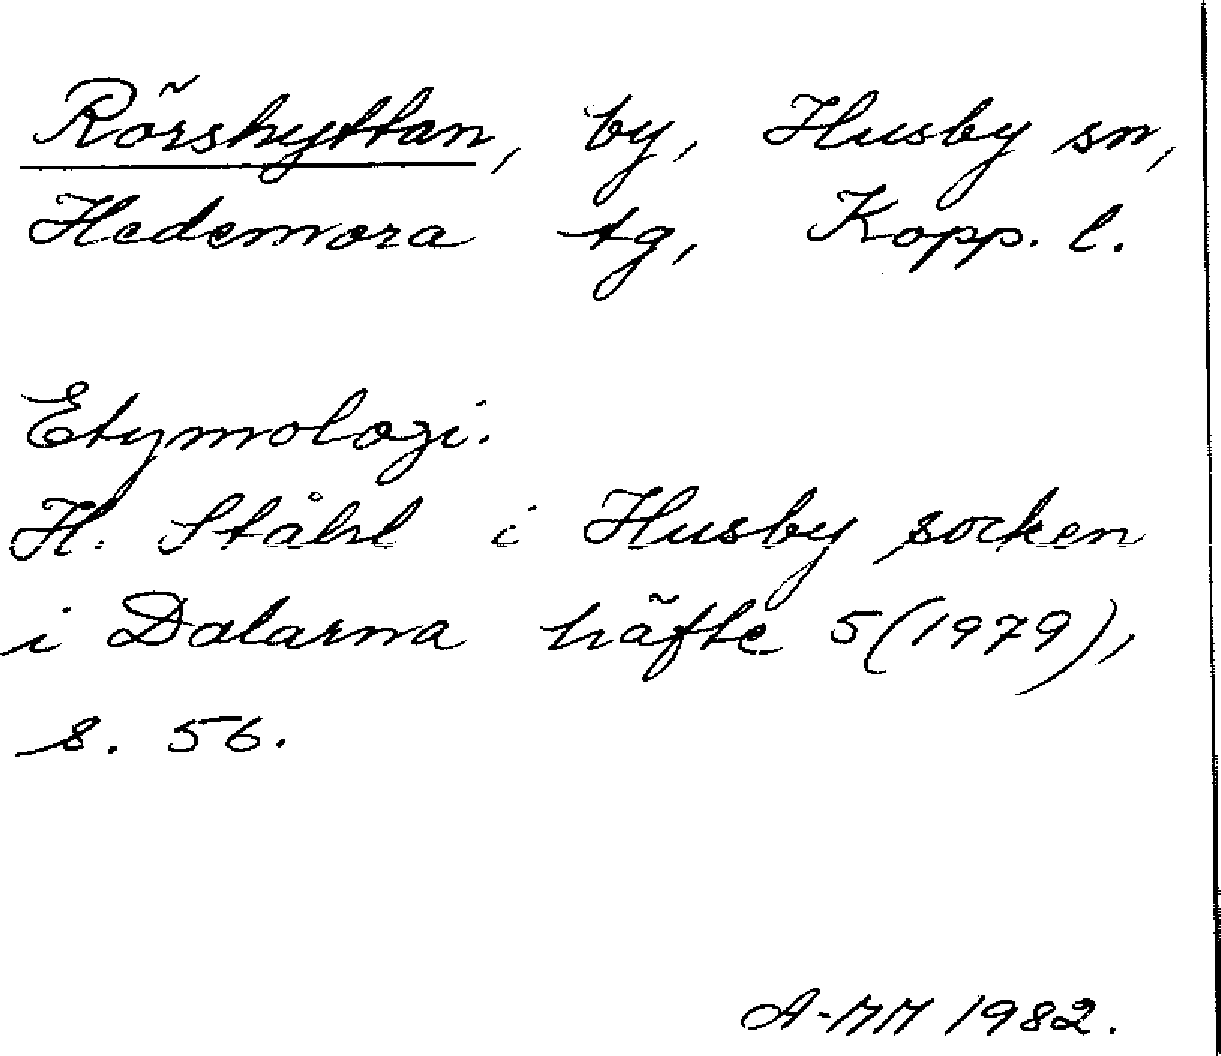 Rörshyttan, by, Husby sn,
Hedemora tg, Kopp. l.
Etymologi.
H. Ståhl i Husby socken
i Dalarna häfte 5 (1979),
s. 56.
A-MM 1982.